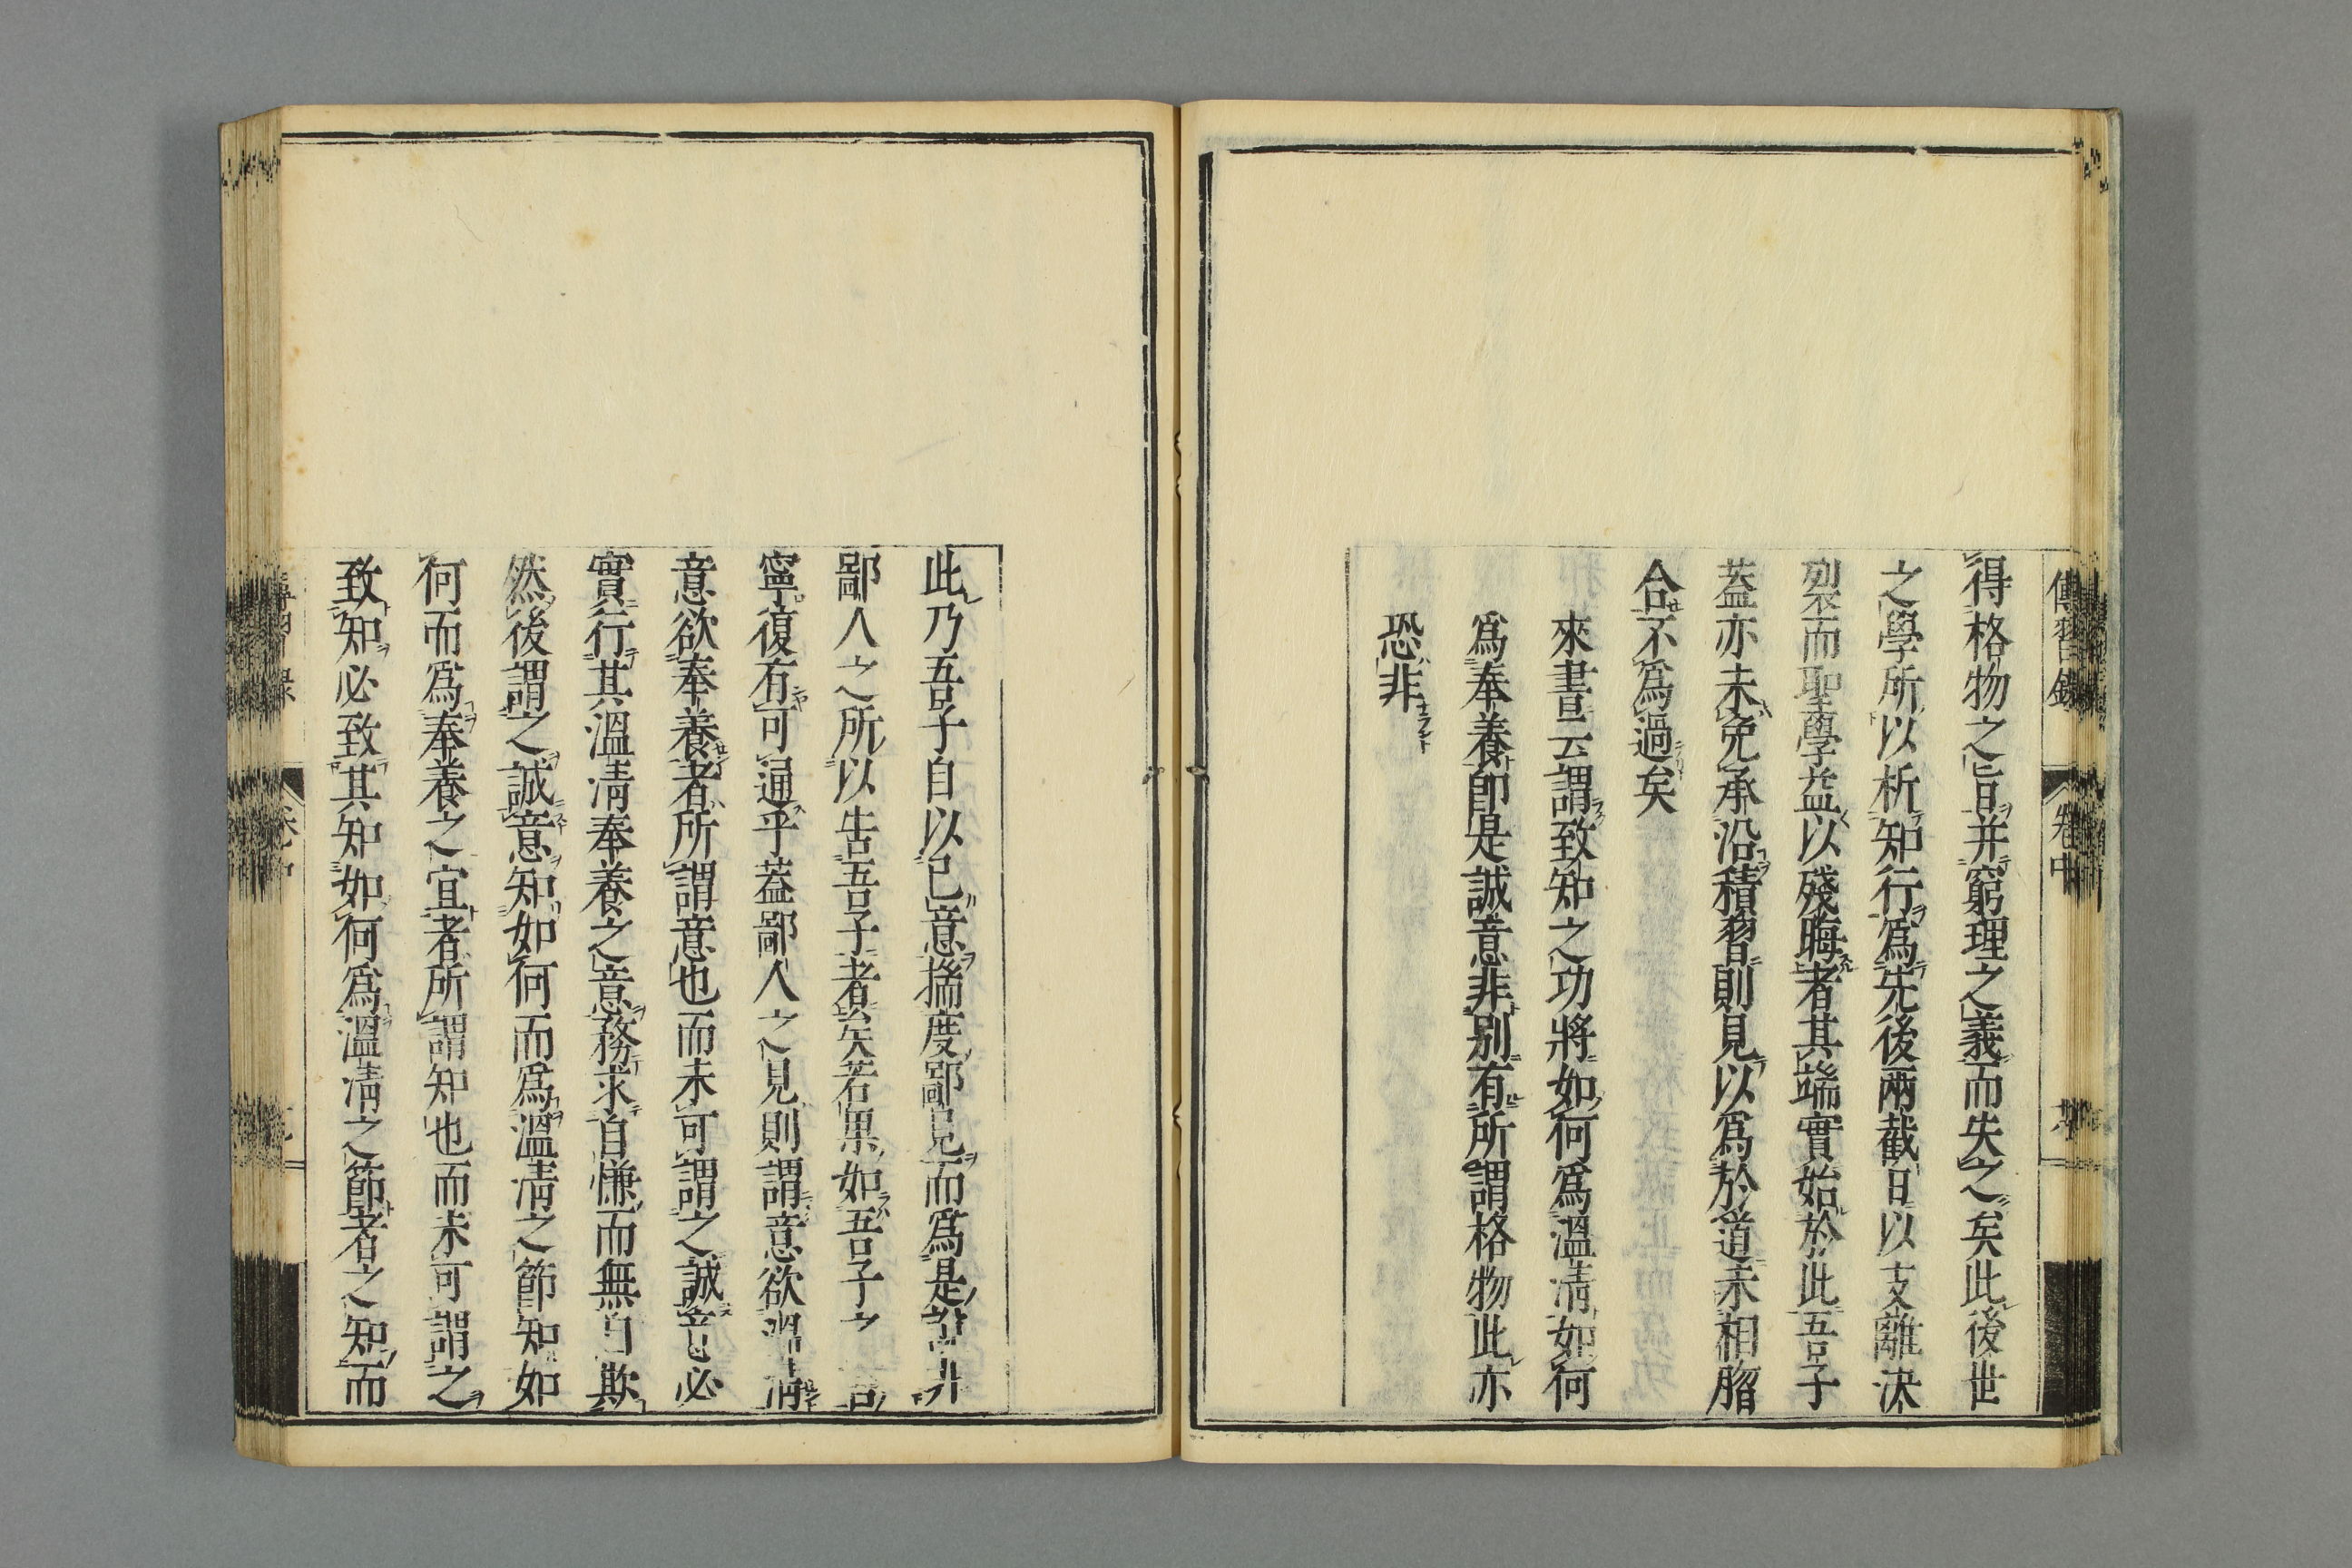 傳習錄 卷中
得格物之旨并窮理之義而失之矣此後世
之學所以析知行爲先後兩截日以支離決
裂而聖學益以殘晦者其端實始於此吾子
蓋亦未免承沿積習則見以爲於道未相脗
合不爲過矣
來書云謂致知之功將如何爲溫凊如何
爲奉養即是誠意非別有所謂格物此亦
恐非
此乃吾子自以己意揣度鄙見而爲是說非
鄙人之所以告吾子者矣若果如吾子之言
寧復有可通乎蓋鄙人之見則謂意欲溫凊
意欲奉養者所謂意也而未可謂之誠意必
實行其溫凊奉養之意務求自慊而無自欺
然後謂之誠意知如何而爲溫凊之節知如
何而爲奉養之宜者所謂知也而未可謂之
致知必致其知如何爲溫凊之節者之知而